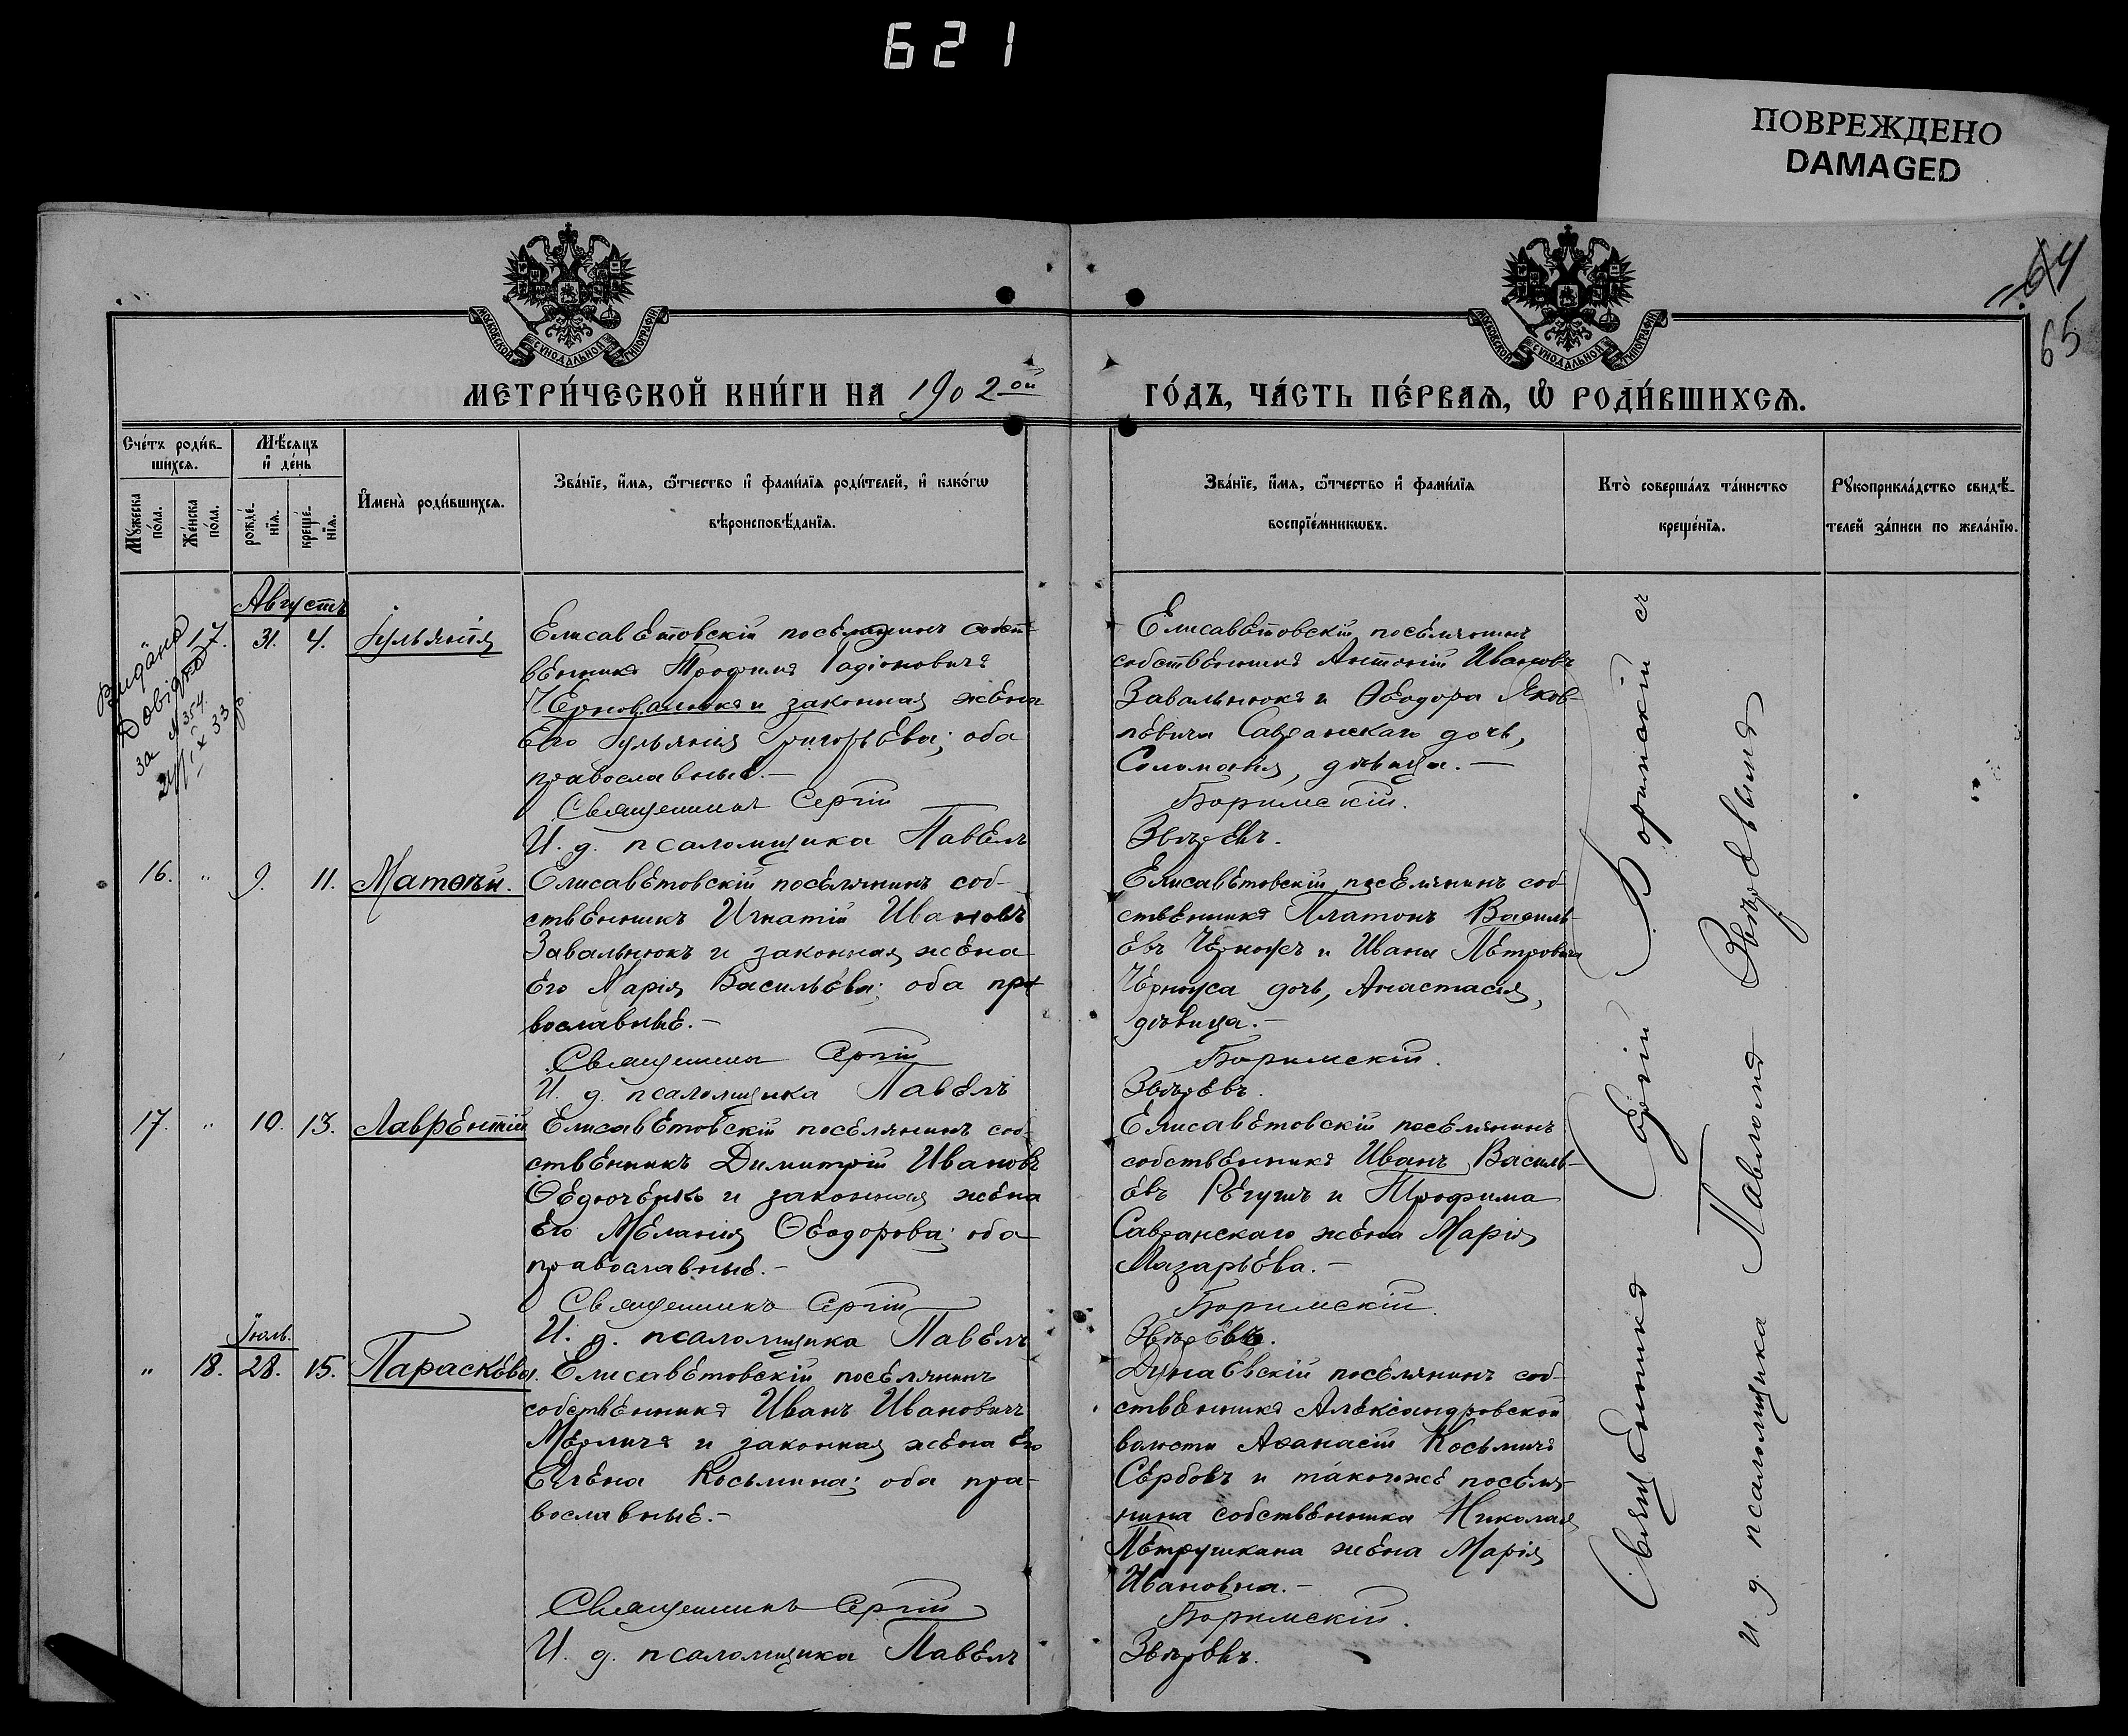 621
ПОВРЕЖДЕНО
DAMAGED
64
65
МОСКОВСКОЙ СѴНОДАЛЬНОЙ ТИПОГРАФІИ
МОСКОВСКОЙ СѴНОДАЛЬНОЙ ТИПОГРАФІИ
МЕТРИ́ЧЕСКОЙ КНИ́ГИ НА 1902ой
ГО́ДЪ, ЧА́СТЬ ПЕ́РВАѦ, Ѽ РОДИ́ВШИХСѦ.
Сче́тъ роди́в-
шихсѧ.
Мꙋ́жеска
по́ла.
Же́нска
по́ла.
Мѣ́сѧцъ
и҆ де́нь
рожде́-
нїѧ.
креще́-
нїѧ.
И҆мена̀ роди́вшихсѧ.
Зва́нїе, и҆́мѧ, ѻ҆́тчество и҆ фами́лїѧ роди́телей, и҆ како́гѡ
вѣроисповѣ́данїѧ.
Зва́нїе, и҆́мѧ, ѻ҆́тчество и҆ фами́лїѧ
воспрїе́мникѡвъ.
Кто̀ соверша́лъ та́инство
креще́нїѧ.
Рꙋкоприкла́дство свидѣ́-
телей за́писи по жела́нїю.
Августъ
17. 31. 4. Іульянія
Видано
Довідка
за № 354.
Елисаветовскій поселянинъ собст-
венникъ Трофимъ Радіоновичъ
Черноволюкъ и законная жена
его Іульянія Григорьева; оба
православные.-
Священникъ Сергій
И. д. псаломщика Павелъ
Елисаветовскій поселянинъ
собственникъ Антоній Ивановъ
Завальнюкъ и Ѳеодора Яков-
левича Савранскаго дочь,
Соломонія, дѣвица.-
Боримскій.
Звѣревъ.
16. " 9. 11. Матѳей.
Елисаветовскій поселянинъ соб-
ственникъ Игнатій Ивановъ
Завальнюкъ и законная жена
его Марія Васильева; оба пра-
вославные.-
Священникъ Сергій
И. д. псаломщика Павелъ
Елисаветовскій поселянинъ соб-
ственникъ Платонъ Василь-
евъ Черноусъ и Ивана Петровича
Черноуса дочь, Анастасія,
дѣвица.-
Боримскій.
Звѣревъ.
17. " 10. 13. Лаврентій
Елисаветовскій поселянинъ соб-
ственникъ Димитрій Ивановъ
Ѳедюченко и законная жена
его Меланія Ѳеодорова; оба
православные.-
Священникъ Сергій
И. д. псаломщика Павелъ
Елисаветовскій поселянинъ
собственникъ Иванъ Василь-
евъ Регушъ и Трофима
Савранскаго жена Марія
Лазарьева.-
Боримскій.
Звѣревъ.
Іюль.
" 18. 28. 15. Параскева.
Елисаветовскій поселянинъ
собственникъ Иванъ Ивановичъ
Мерличъ и законная жена его
Елена Косьмина; оба пра-
вославные.-
Священникъ Сергій
И. д. псаломщика Павелъ
Дунаевскій поселянинъ соб-
ственникъ Александровской
волости Аѳанасій Косьмичъ
Сербовъ и такогоже поселя-
нина собственника Николая
Петрушкана жена Марія
Ивановна.-
Боримскій.
Звѣревъ.
Священникъ Сергій Боримскій съ
и. д. псаломщика Павломъ Звѣревымъ